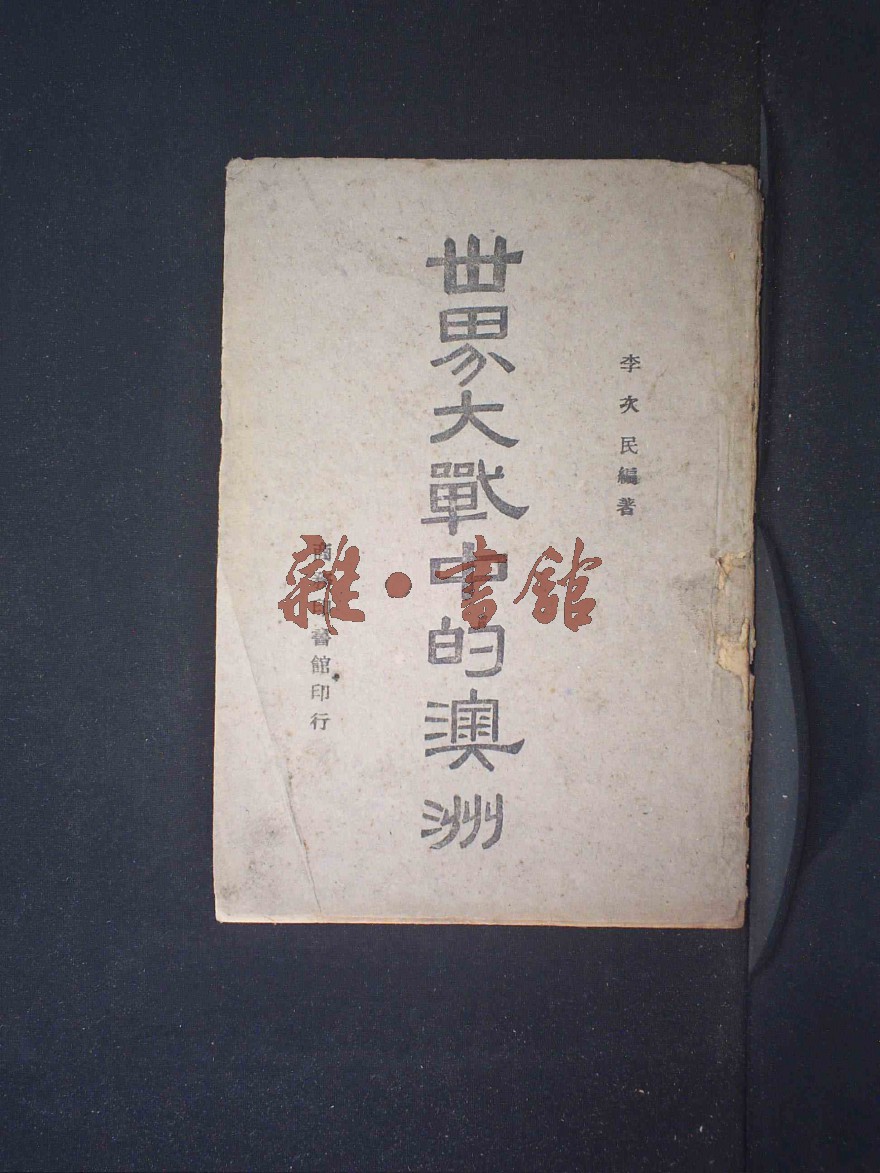 李次民編著
世界大戰中的澳洲
商務印書館印行
雜·書館